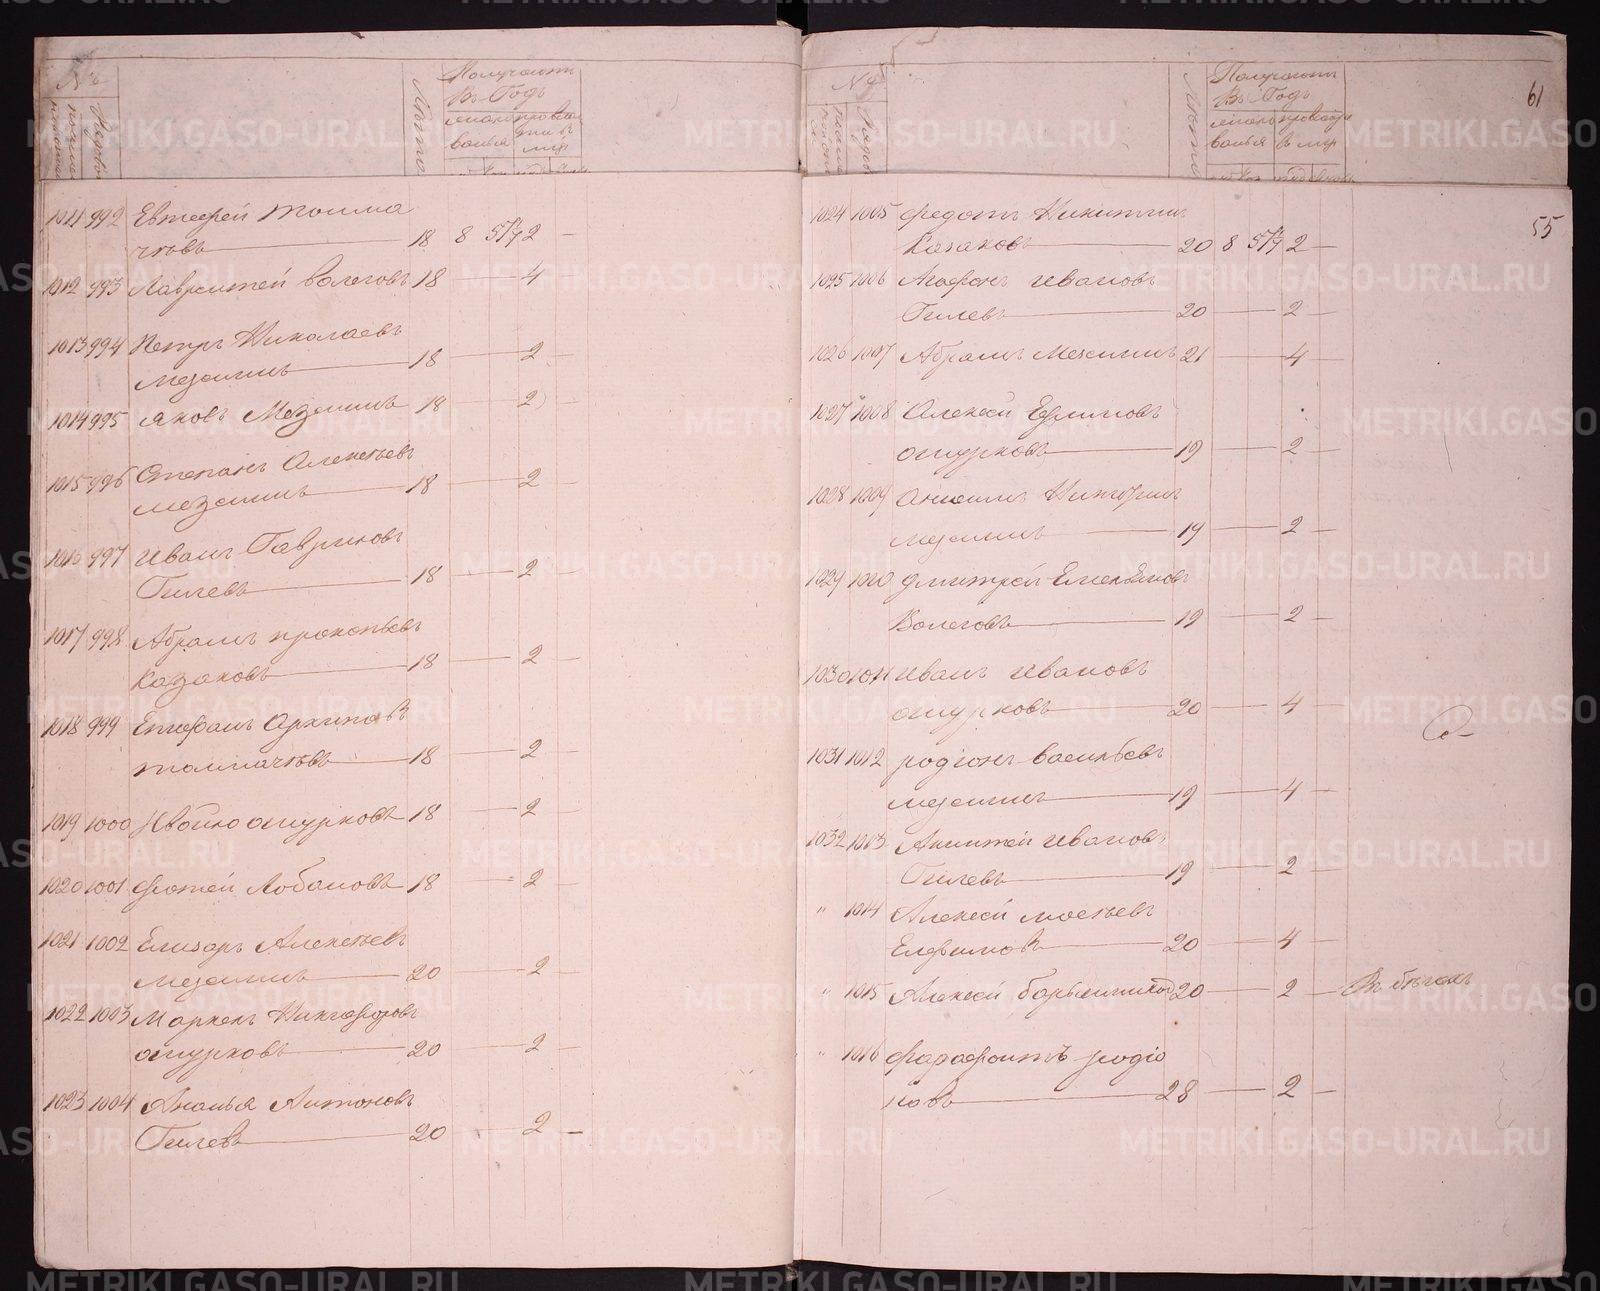 №
Лѣта
Получаютъ
Въ Годъ
жалованья
провіанта въ м-цъ
1011 992 Евтифей Толма
чевъ 18 8 57 1/7 2 —
1012 993 Лаврентей Волеговъ 18 — 4
1013 994 Петръ Николаевъ
Мезенинъ 18 — 2 —
1014 995 Яковъ Мезенинъ 18 — 2 —
1015 996 Степанъ Алексѣевъ
Мезенинъ 18 — 2 —
1016 997 Иванъ Гавриловъ
Гилевъ 18 — 2 —
1017 998 Абрамъ Прокопьевъ
Казаковъ 18 — 2 —
1018 999 Епифанъ Архиповъ
Толмачевъ 18 — 2 —
1019 1000 Ошурковъ 18 — 2 —
1020 1001 Фотей Лобановъ 18 — 2 —
1021 1002 Елизаръ Алексѣевъ
Мезенинъ 20 — 2 —
1022 1003 Маркелъ Никифоровъ
Ошурковъ 20 — 2 —
1023 1004 Ананья Антоновъ
Гилевъ 20 — 2 —
61
№
Лѣта
Получаютъ
Въ Годъ
жалованья
провіанта въ м-цъ
55
1024 1005 Федотъ Никитинъ
Казаковъ 20 8 57 1/7 2 —
1025 1006 Агафонъ Ивановъ
Гилевъ 20 — 2 —
1026 1007 Абрамъ Мезенинъ 21 — 4 —
1027 1008 Алексей Ефимовъ
Ошурковъ 19 — 2 —
1028 1009 Анисимъ
Мезенинъ 19 — 2 —
1029 1010 Дмитрей Емельяновъ
Волеговъ 19 — 2 —
1030 1011 Иванъ Ивановъ
Ошурковъ 20 — 4 —
1031 1012 Родіонъ Васильевъ
Мезенинъ 19 — 4 —
1032 1013 Ивановъ
Гилевъ 19 — 2 —
" 1014 Алексей
20 — 4 —
" 1015 Алексей 20 — 2 — Въ бѣгахъ
" 1016 Фарафонтъ Родіо
новъ 28 — 2 —
METRIKI.GASO-URAL.RU